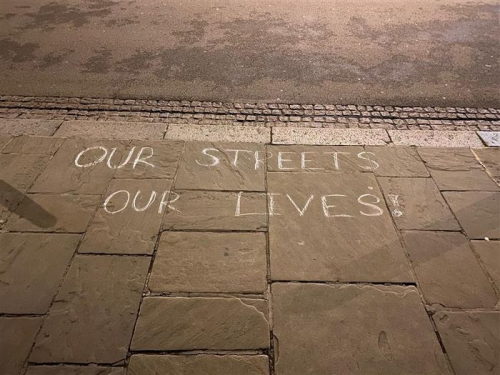 OUR STREETS
OUR LIVES!